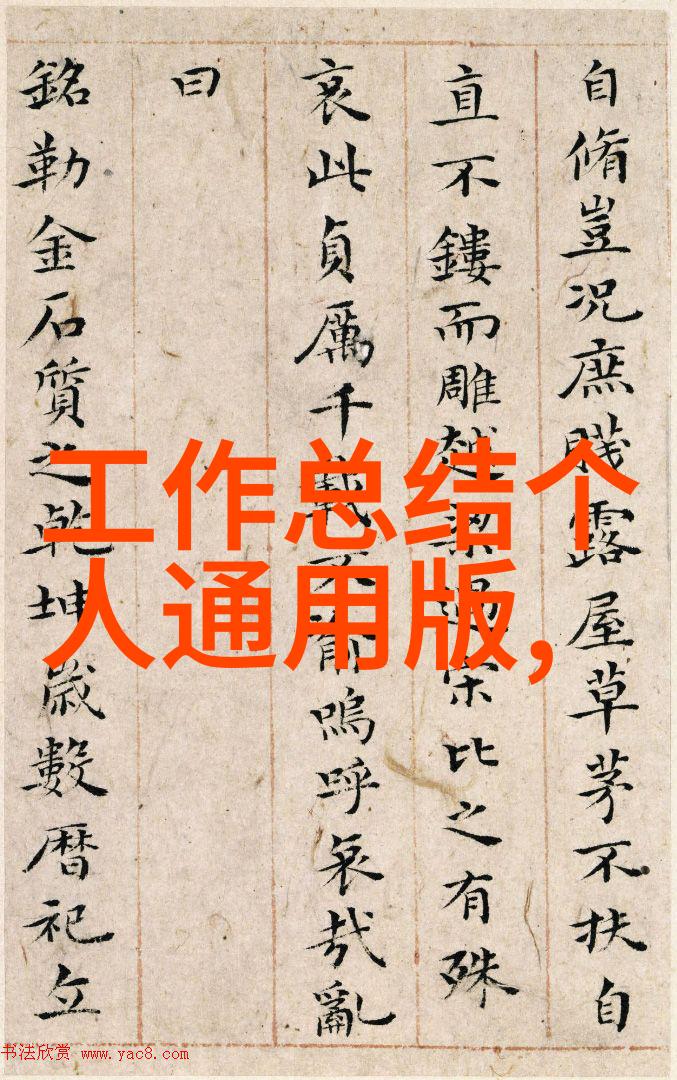 自脩豈况庶賤露屋草茅不扶自
直不鏤而雕越梁過宋比之有殊
哀此貞厲千載不渝嗚呼哀哉亂
曰
銘勒金石質之乾坤歲數曆祀丘
工作总结个
人通用版,
书法欣赏 www.yac8.com